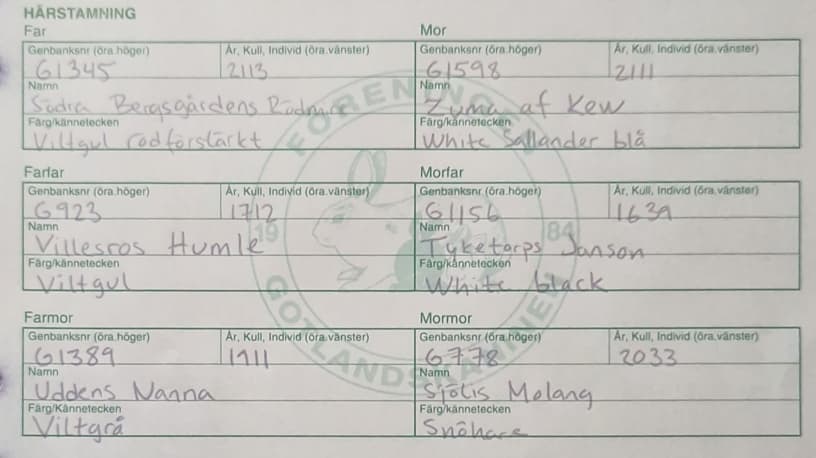 HÄRSTAMNING
Far Mor
Genbanksnr (öra.höger) År, Kull, Individ (öra.vänster) Genbanksnr (öra.höger) År, Kull, Individ (öra.vänster)
G1345 2113 G1598 2111
Namn Namn
Södra Bergsgårdens Zuma af Kew
Färg/kännetecken Färg/kännetecken
Viltgul rödförstärkt White Sallander blå
Farfar Morfar
Genbanksnr (öra.höger) År, Kull, Individ (öra.vänster) Genbanksnr (öra.höger) År, Kull, Individ (öra.vänster)
G923 1712 G1156 1639
Namn Namn
Villesros Humle Tyketorps Janson
Färg/kännetecken Färg/kännetecken
Viltgul White black
Farmor Mormor
Genbanksnr (öra.höger) År, Kull, Individ (öra.vänster) Genbanksnr (öra.höger) År, Kull, Individ (öra.vänster)
G1389 1911 G778 2033
Namn Namn
Uddens Nanna Sjölis Melang
Färg/Kännetecken Färg/kännetecken
Viltgrå Snöhare
FÖRENINGEN
GOTLANDSKANINEN
19 84